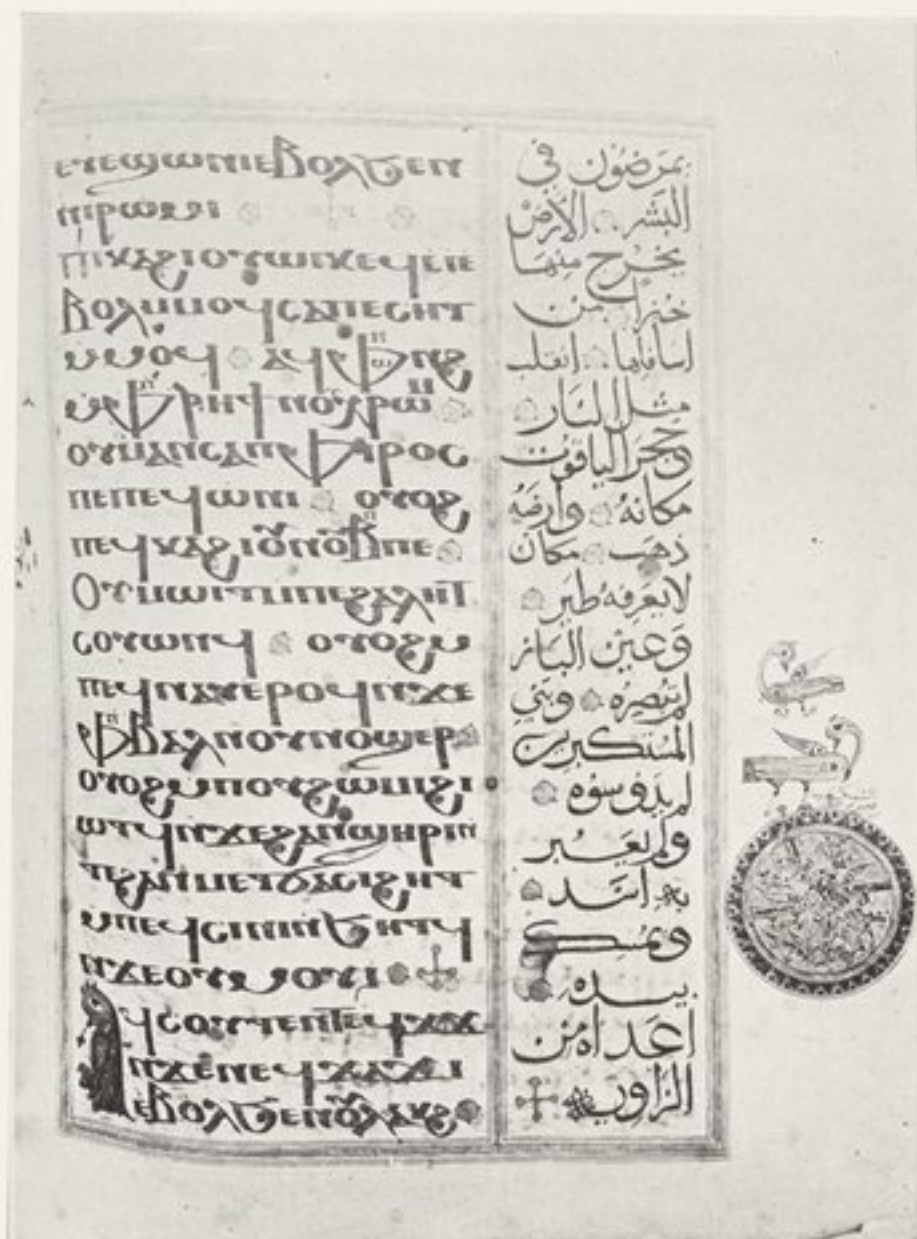 ⲉⲩⲉϣⲱⲛⲓ ⲉⲃⲟⲗϧⲉⲛ
ⲛⲓⲣⲱⲙⲓ
ⲡⲓⲕⲁϩⲓ ⲟⲩⲱⲓⲕ ⲉϥⲉⲓⲉ
ⲃⲟⲗ ⲙⲙⲟϥ ⲥⲁⲡⲉⲥⲏⲧ
ⲙⲙⲟϥ ⲁϥⲫⲱⲛϩ
ⲙⲫⲣⲏϯ ⲛⲟⲩⲭⲣⲱⲙ
ⲟⲩⲙⲁ ⲛⲥⲁⲡⲫⲓⲣⲟⲥ
ⲡⲉ ⲡⲉϥⲱⲛⲓ ⲟⲩⲟϩ
ⲡⲉϥⲕⲁϩⲓ ⲟⲩⲛⲟⲩⲃ ⲡⲉ
ⲟⲩⲙⲱⲓⲧ ⲙⲡⲉϩⲁⲗⲏⲧ
ⲥⲟⲩⲱⲛϥ ⲟⲩⲟϩ ⲙ
ⲡⲉϥⲛⲁⲩ ⲉⲣⲟϥ ⲛϫⲉ
ⲫⲃⲁⲗ ⲛⲟⲩⲛⲟϣⲉⲣ
ⲟⲩⲟϩ ⲙⲡⲟⲩϩⲱⲙⲓ ϩⲓ
ⲱⲧϥ ⲛϫⲉ ϩⲁⲛϣⲏⲣⲓ ⲛ
ⲧⲉ ϩⲁⲛⲡⲉⲧϭⲟⲥⲓ ⲛϩⲏⲧ
ⲙⲡⲉϥⲥⲓⲛⲓ ⲛϧⲏⲧϥ
ⲛϫⲉ ⲟⲩⲙⲟⲩⲓ
ⲁϥⲥⲟⲩⲧⲉⲛ
ⲛϫⲉ ⲛⲉϥϫⲁϫⲓ
ⲉⲃⲟⲗϧⲉⲛ
يمرضون في
البشر الأرض
يخرج منها
خبزا من
اسافلها انقلب
مثل النار
وحجر الياقوت
مكانه وارضه
ذهب مكان
لا يعرفه طير
وعين الباز
لم تبصره وبني
المتكبرين
لم يدوسوه
ولم يعبر
به اسد
ويمسك
بيده
اعداه من
الزاويه